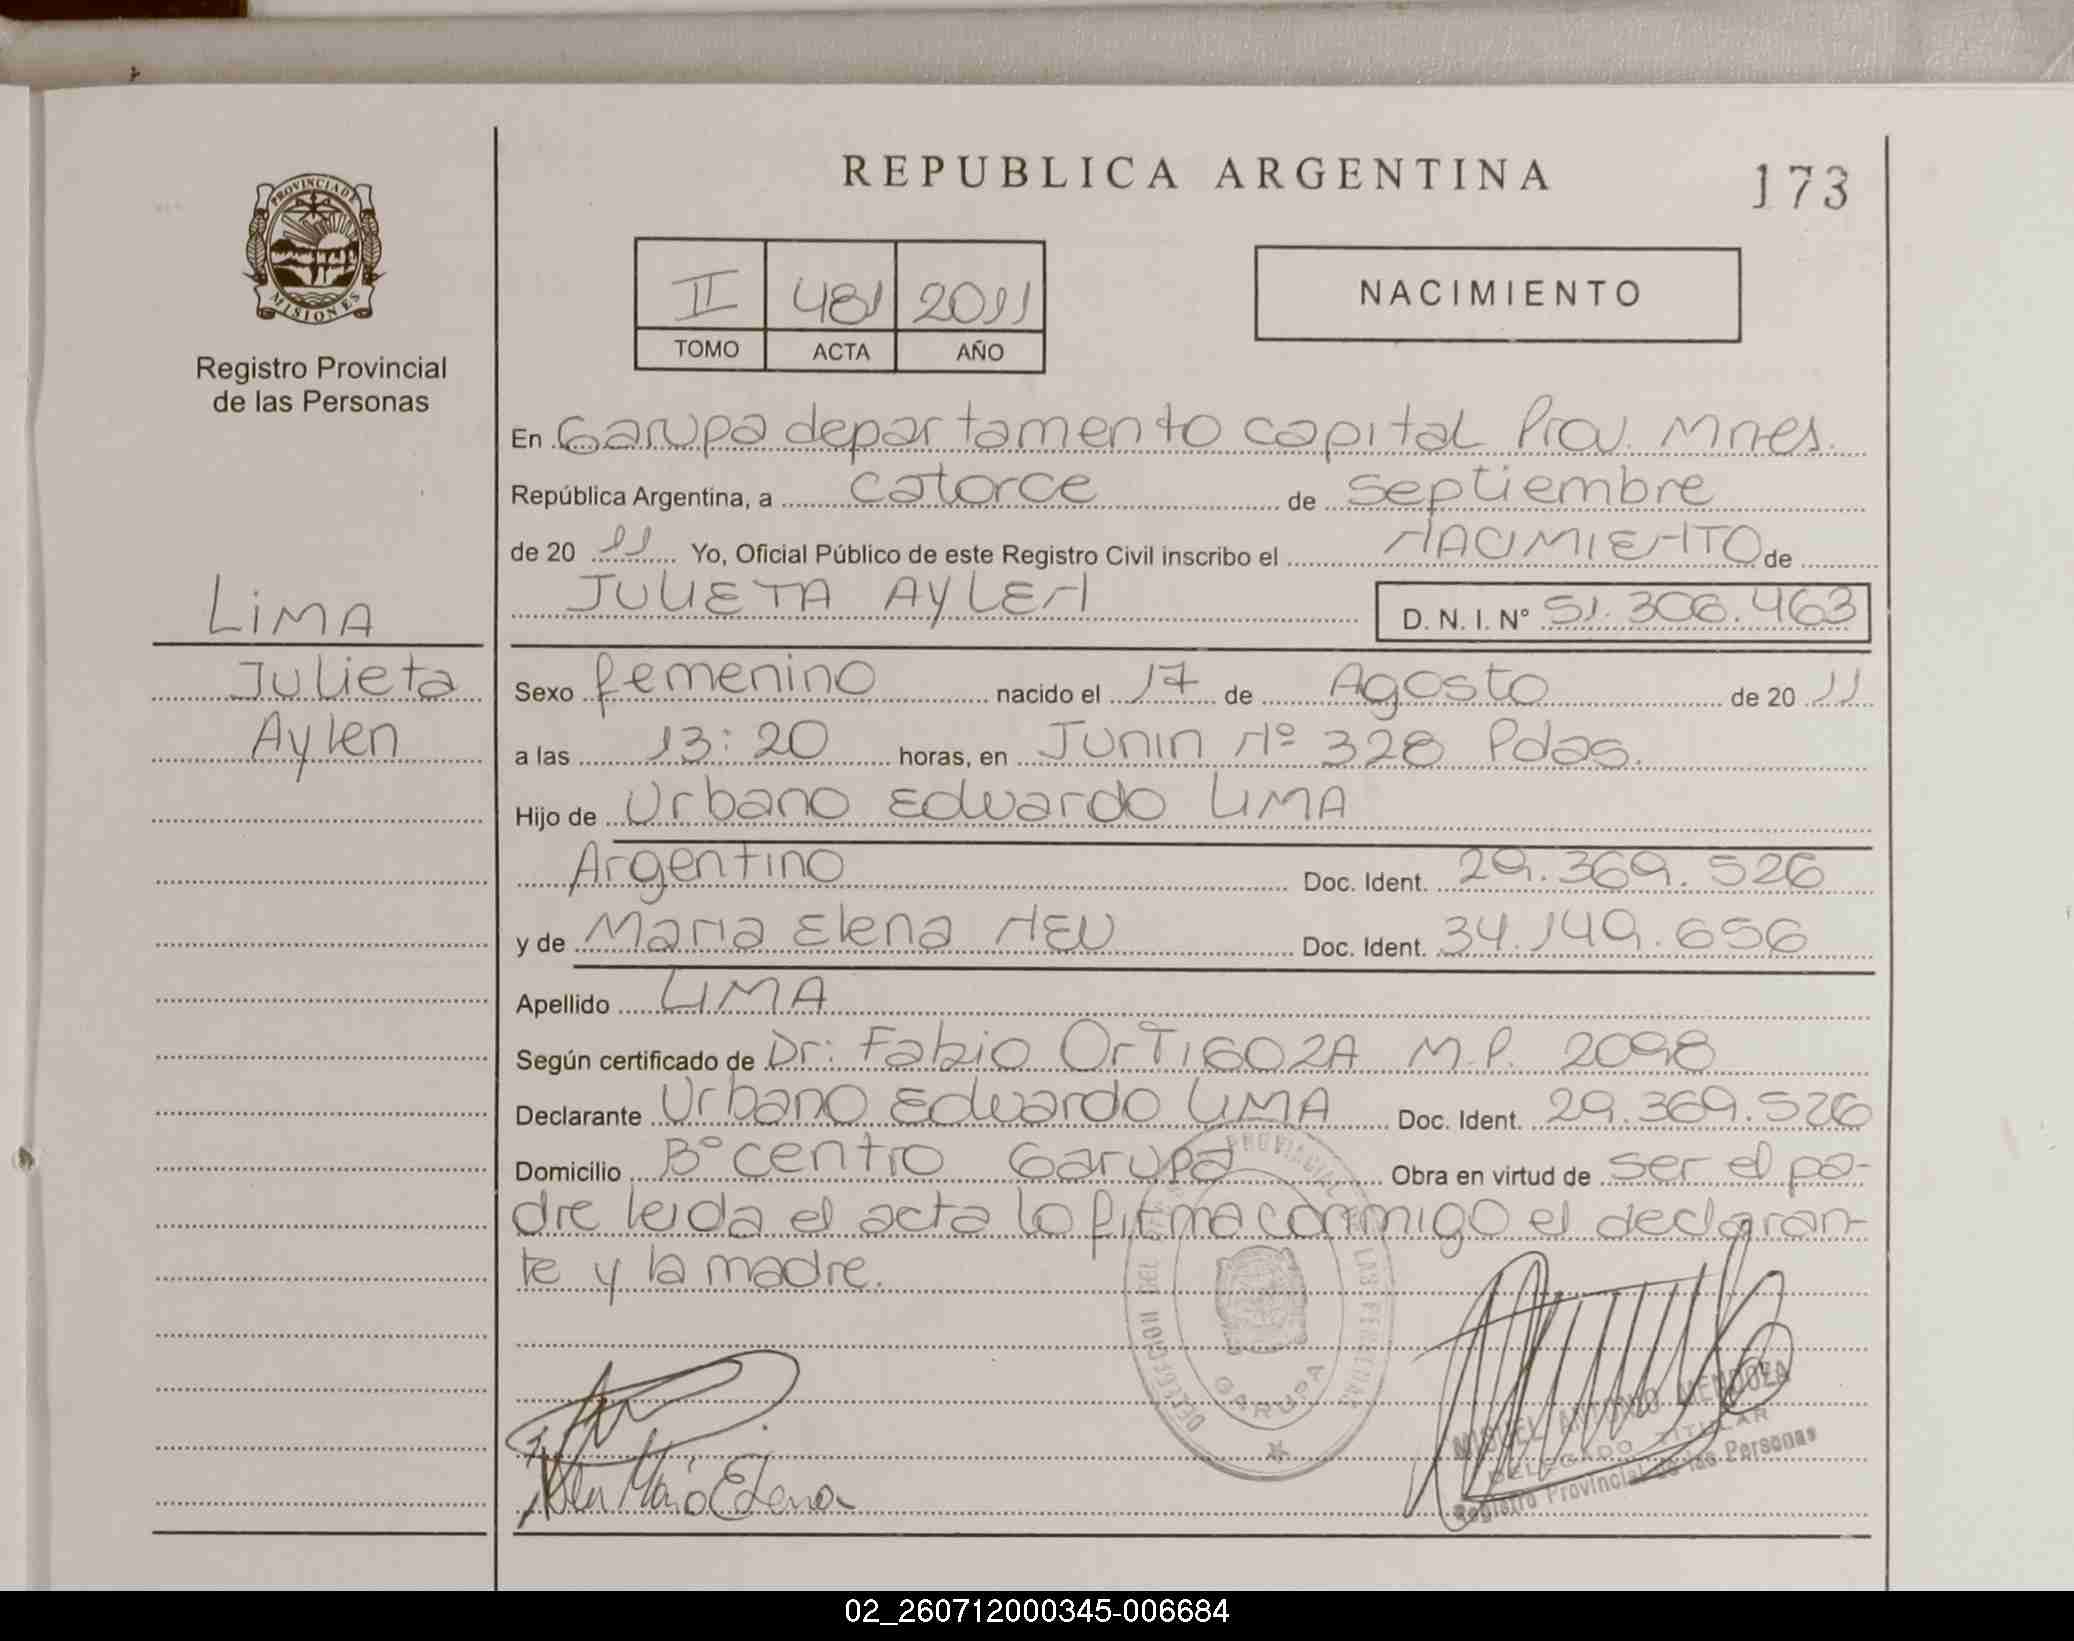 REPUBLICA ARGENTINA
173
PROVINCIA DE
MISIONES
Registro Provincial
de las Personas
II 481 2011
TOMO ACTA AÑO
NACIMIENTO
En Garupa departamento capital Prov. Mnes.
República Argentina, a catorce de septiembre
de 20 11 Yo, Oficial Público de este Registro Civil inscribo el NACIMIENTO de
JULIETA AYLEN
D. N. I. Nº 51.306.463
LIMA
Julieta
Aylen
Sexo femenino nacido el 17 de Agosto de 20 11
a las 13:20 horas, en Junin Nº 328 Pdas.
Hijo de Urbano Eduardo LIMA
Argentino Doc. Ident. 29.369.526
y de Maria Elena NEU Doc. Ident. 34.149.656
Apellido LIMA
Según certificado de Dr: Fabio OrTIGOZA M.P. 2098
Declarante Urbano Eduardo LIMA Doc. Ident. 29.369.526
Domicilio Bº centro Garupa Obra en virtud de ser el pa-
dre leida el acta lo firma conmigo el declaran-
te y la madre.
DELEGACION DEL PROVINCIAL LAS PERSONAS
GARUPA
Maria Elena
MIGUEL ANTONIO MENDOZA
DELEGADO TITULAR
Registro Provincial de las Personas
02_260712000345-006684